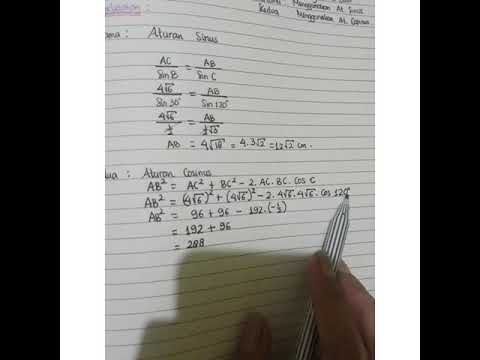 Menggunakan At. Sinus
Kedua Menggunakan At. Cosinus
ama: Aturan Sinus
AC/Sin B = AB/Sin C
4√6/Sin 30° = AB/Sin 120°
4√6/½ = AB/½√3
AB = 4√18 = 4.3√2 = 12√2 cm.
ua: Aturan Cosinus
AB² = AC² + BC² - 2. AC. BC. Cos C
AB² = (4√6)² + (4√6)² - 2. 4√6. 4√6. Cos 120°
AB² = 96 + 96 - 192. (-½)
= 192 + 96
= 288